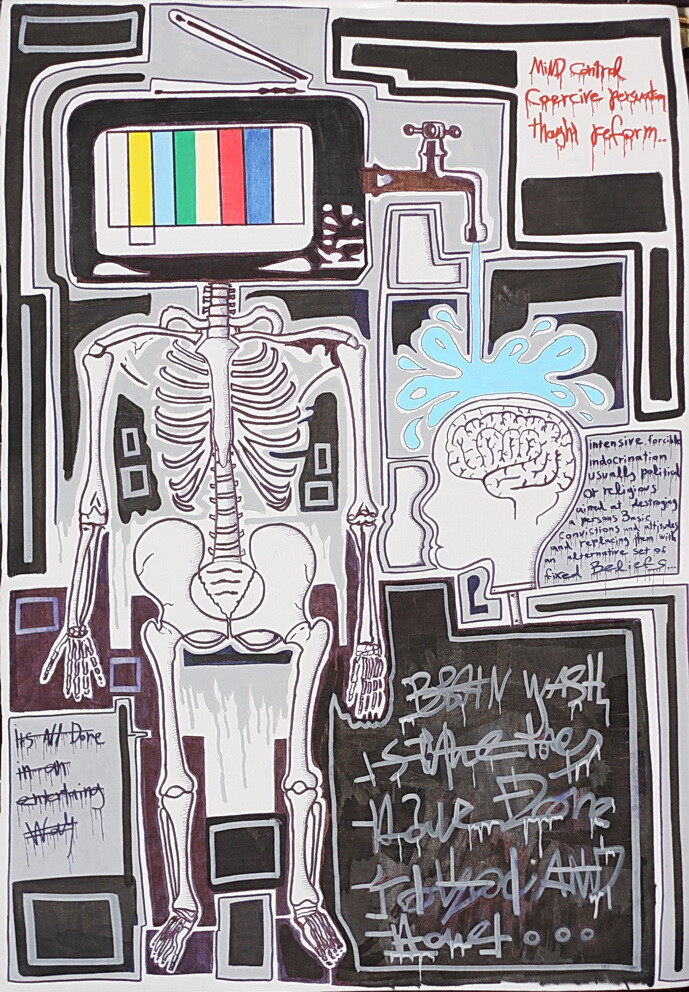 MiND control
Coercive persuation
thought reform..
intensive, forcible
indocrination
usually political
or religious
aimed at destroging
a persons Basic
convictions and attitudes
and replacing them with
an alternative set of
fixed Beliefs...
its All Done
in an
entertaining
Way
BRAiN WASH
is they
Have Done
AND